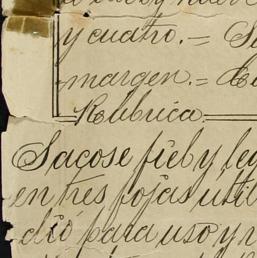 y cuatro.=
margen.=
Rúbrica
Sacose fiel y
en tres fojas util
dió para uso y